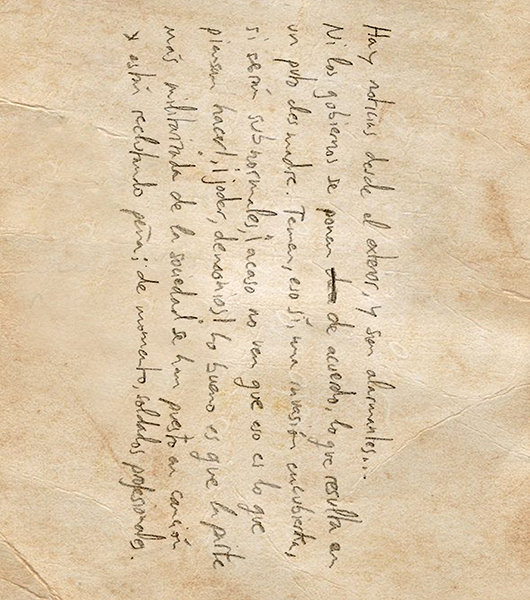 Hay noticias desde el exterior, y son alarmantes...
Ni los gobiernos se ponen de acuerdo, lo que resulta en
un puto desmadre. Temen, eso sí, una invasión encubierta,
si serán subnormales, ¿acaso no ven que eso es lo que
piensan hacer?, ¡joder, demonios! Lo bueno es que la parte
más militarizada de la sociedad se han puesto en canción
y están reclutando peña; de momento, soldados profesionales.